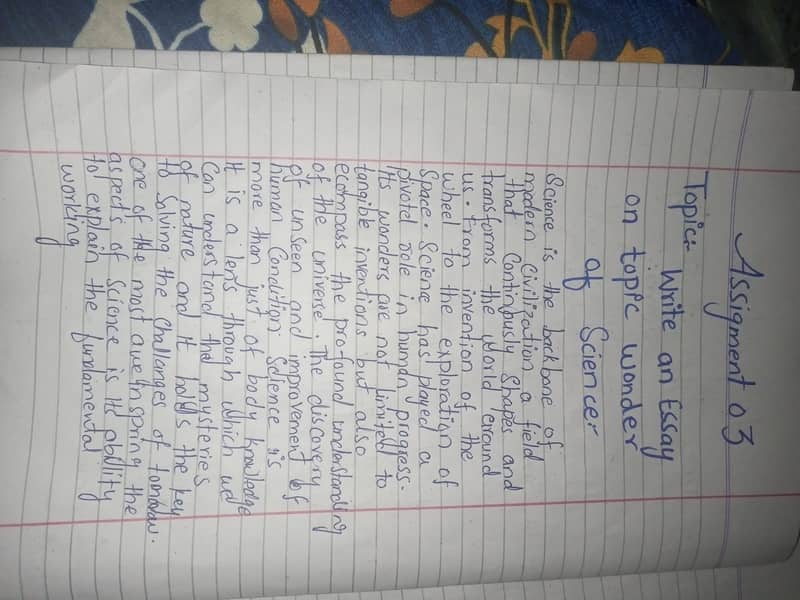 Assigment 03
Topic:- Write an Essay
on topic wonder
of Science:-
Science is the backbone of
modern Civilization a field
that Continously Shapes and
transforms the World around
us. From invention of the
wheel to the exploration of
Space. Science has played a
pivotel role in human progress.
Its wonders are not limited to
tangible inventions but also
ecompass the profound understanding
of the universe. The discovery
of unseen and improvement of
human Condition. Science is
more than just of body knowledge
it is a lens through which we
Can understand the mysteries
of nature and it holds the key
to Solving the Challenges of tomorow.
one of the most awe inspring the
aspects of Science is its ability
to explain the fundamental
working